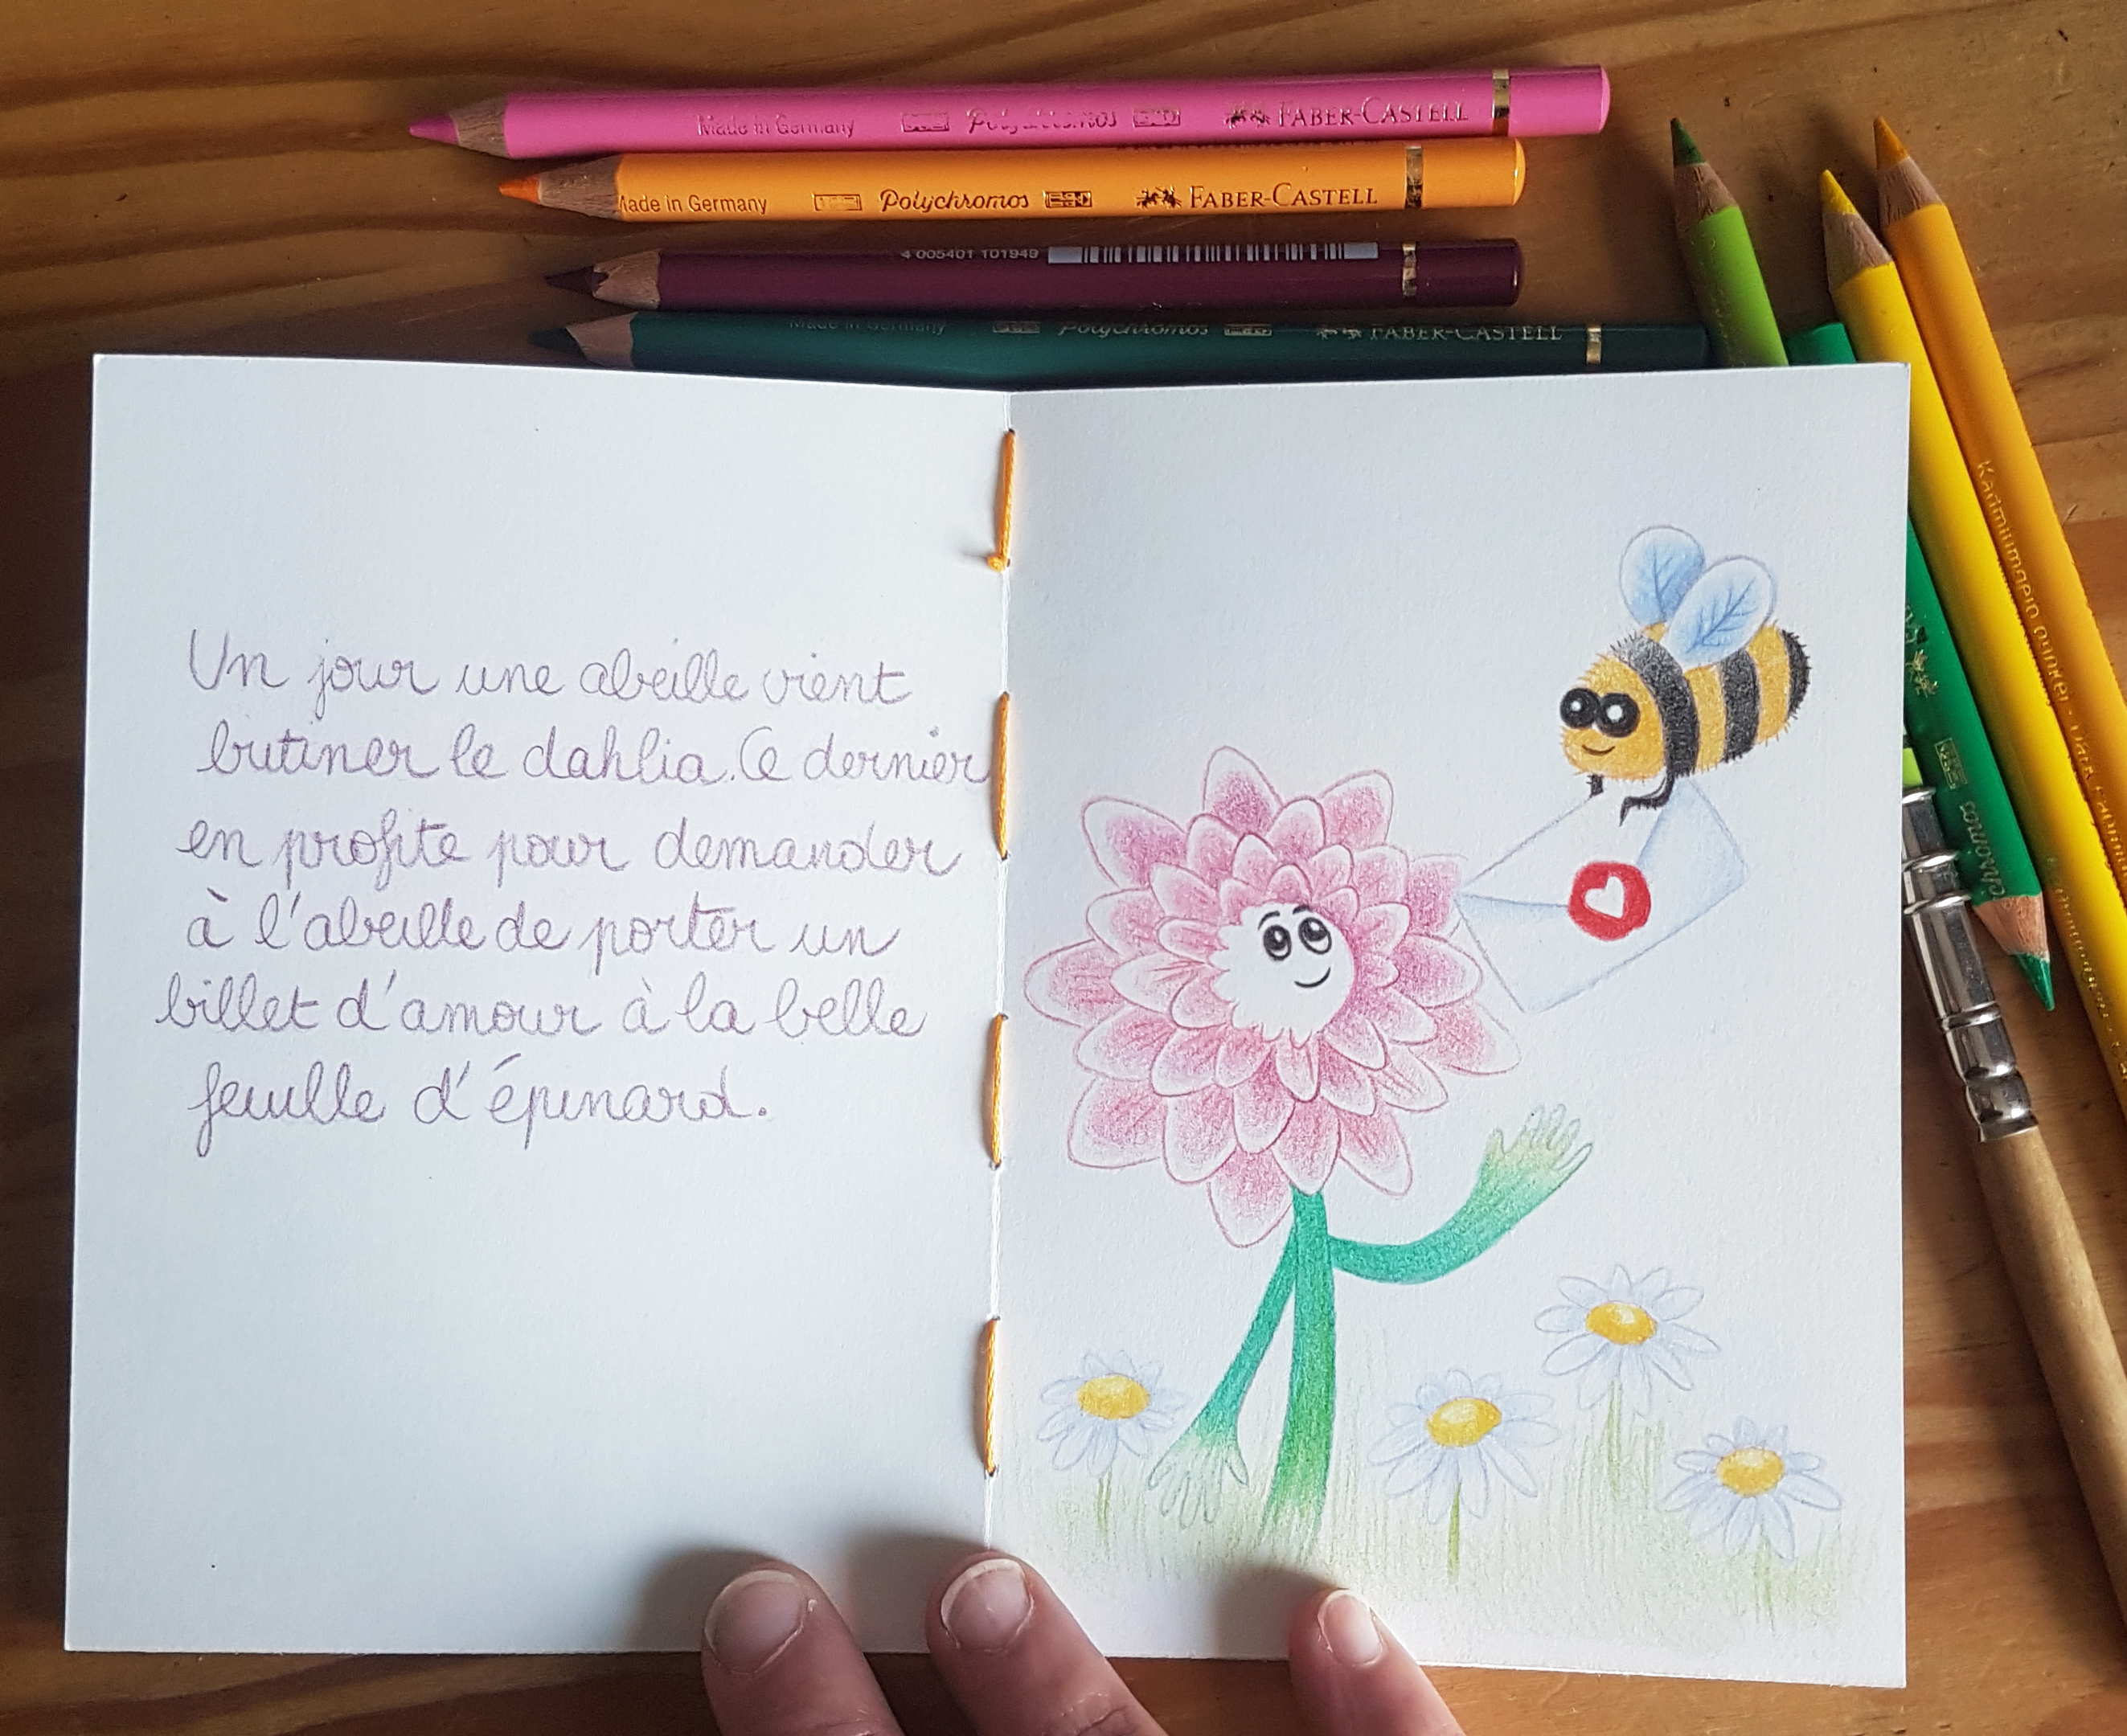 Made in Germany Polychromos FABER-CASTELL
Made in Germany Polychromos FABER-CASTELL
4 005401 101949
Made in Germany Polychromos FABER-CASTELL
Un jour une abeille vient
butiner le dahlia. Ce dernier
en profite pour demander
à l'abeille de porter un
billet d'amour à la belle
feuille d'épinard.